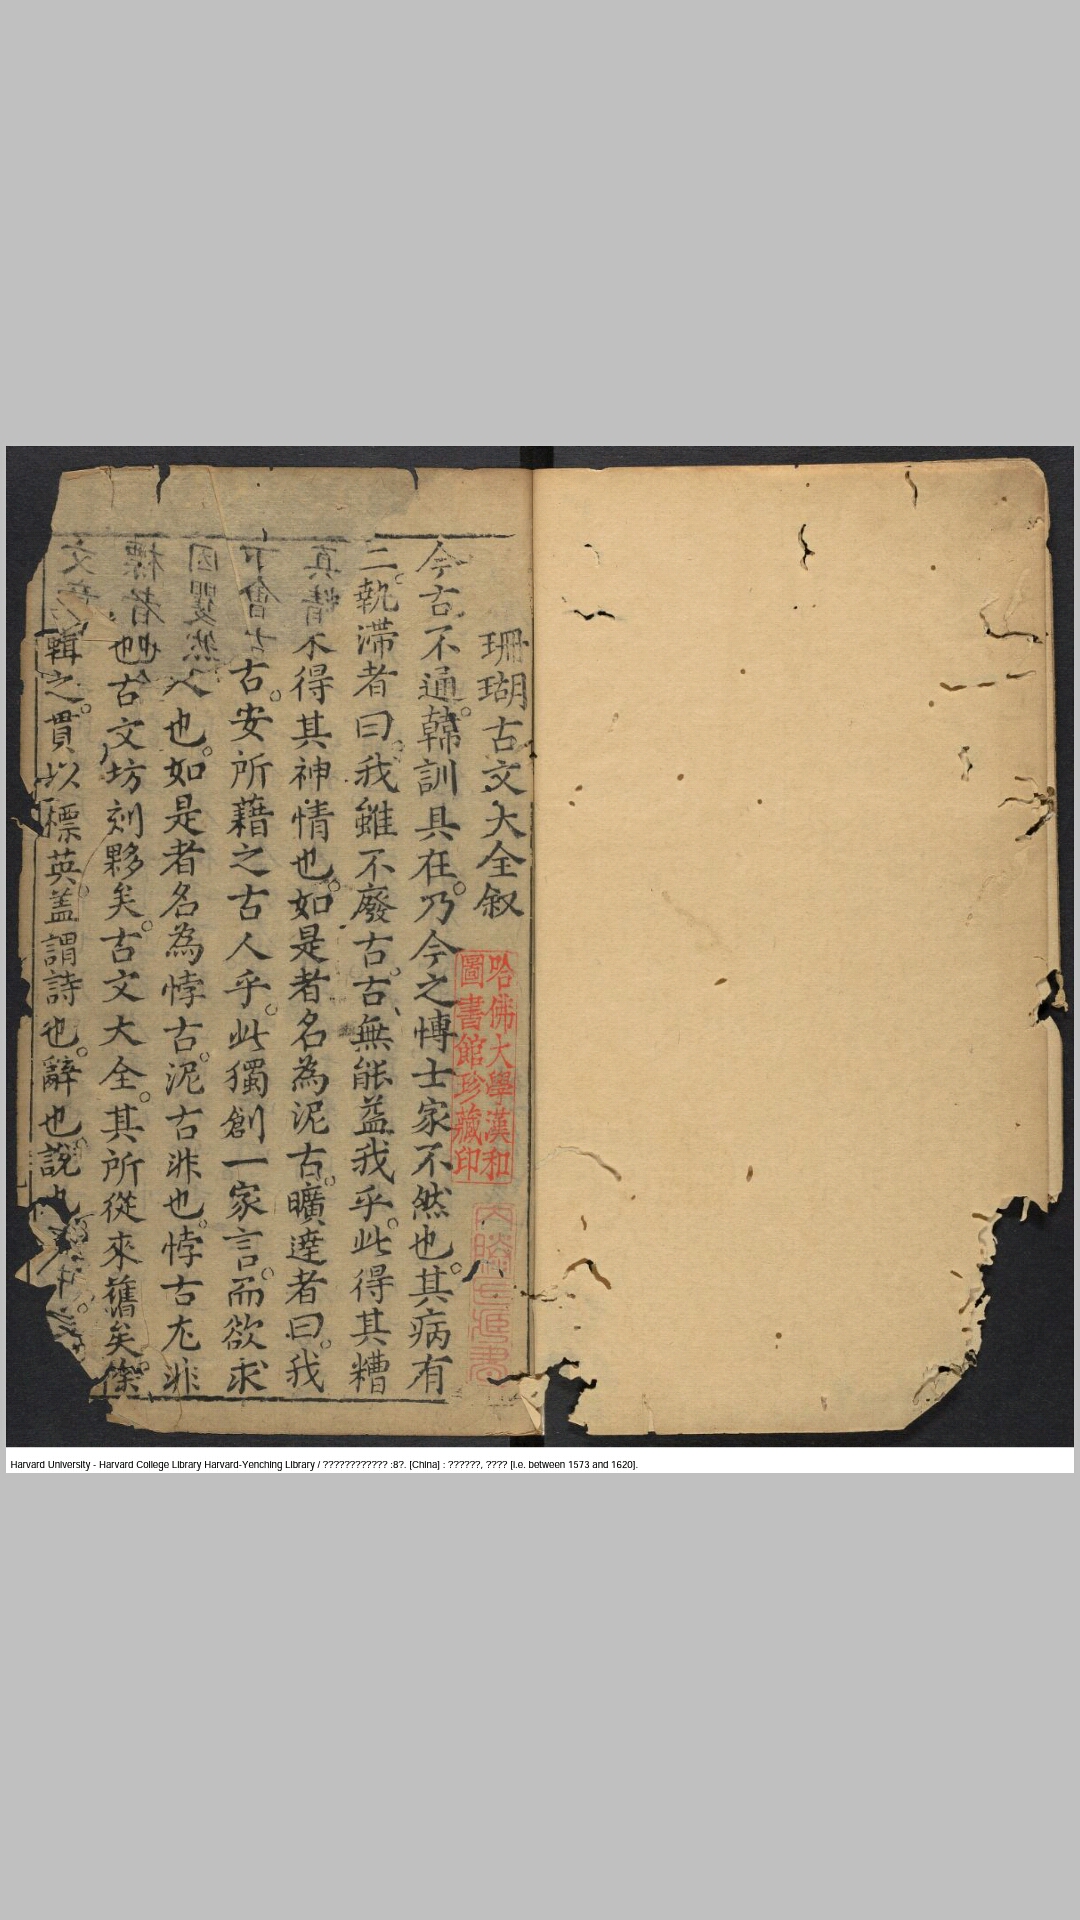 珊瑚古文大全叙
今古不通韓訓具在乃今之博士家不然也其病有
二執滯者曰我雖不廢古古無能益我乎此得其糟
不得其神情也如是者名為泥古曠達者曰我
古安所藉之古人乎此獨創一家言而欲求
也如是者名為悖古泥古非也悖古尤非
也古文坊刻夥矣古文大全其所從來舊矣
輯之貫以標英盖謂詩也辭也說也
哈佛大學漢和
圖書館珍藏印
Harvard University - Harvard College Library Harvard-Yenching Library / ???????????? :8?. [China] : ??????, ???? [i.e. between 1573 and 1620].